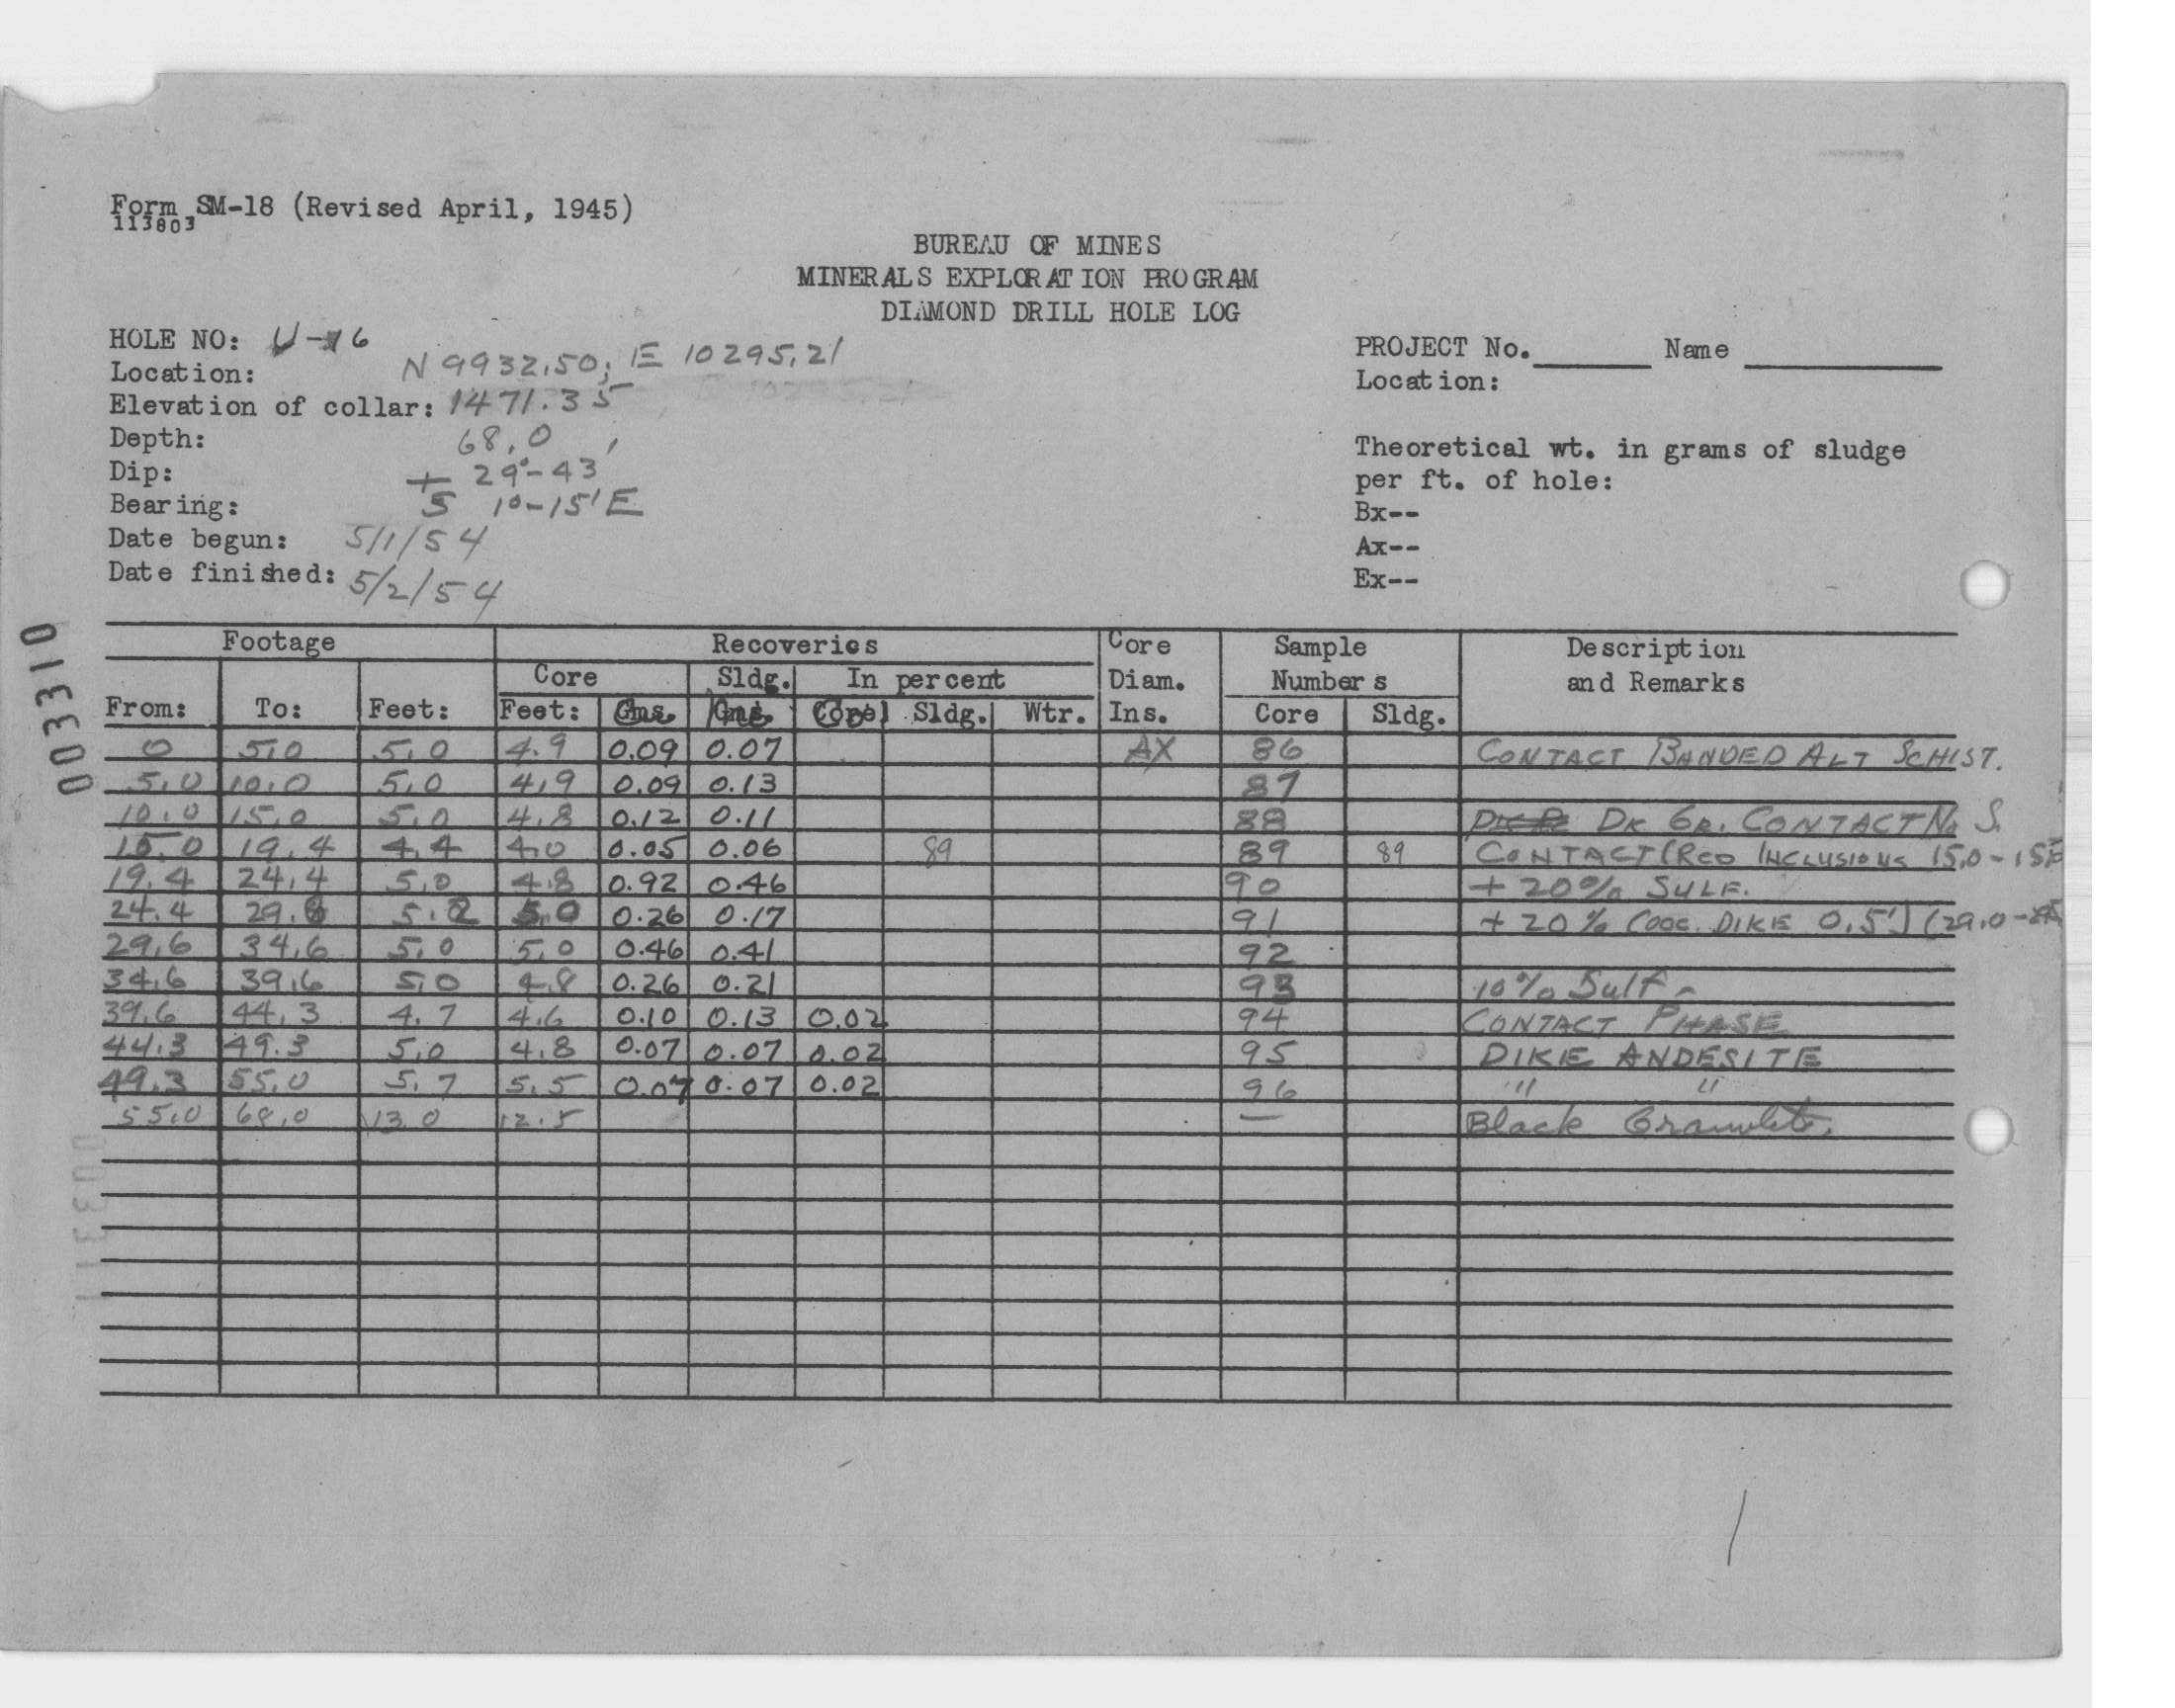 Form SM-18 (Revised April, 1945)
113803
BUREAU OF MINES
MINERALS EXPLORATION PROGRAM
DIAMOND DRILL HOLE LOG
HOLE NO: U-16
Location: N 9932.50; E 10295.21
Elevation of collar: 1471.35
Depth: 68.0
Dip: + 29°-43'
Bearing: S 1°-15' E
Date begun: 5/1/54
Date finished: 5/2/54
PROJECT No. Name
Location:
Theoretical wt. in grams of sludge
per ft. of hole:
Bx--
Ax--
Ex--
003310
Footage Recoveries Core Sample Description
Core Sldg. In percent Diam. Numbers and Remarks
From: To: Feet: Feet: Gms. Gms. Core Sldg. Wtr. Ins. Core Sldg.
0 5.0 5.0 4.9 0.09 0.07 AX 86 CONTACT BANDED ALT SCHIST.
5.0 10.0 5.0 4.9 0.09 0.13 87
10.0 15.0 5.0 4.8 0.12 0.11 88 DK GR. CONTACT No S.
15.0 19.4 4.4 4.0 0.05 0.06 89 89 89 CONTACT (RED INCLUSIONS 15.0-
19.4 24.4 5.0 4.8 0.92 0.46 90 + 20% SULF.
24.4 29.6 5.2 5.0 0.26 0.17 91 + 20% (OCC. DIKE 0.5') (29.0-
29.6 34.6 5.0 5.0 0.46 0.41 92
34.6 39.6 5.0 4.8 0.26 0.21 93 10% Sulf
39.6 44.3 4.7 4.6 0.10 0.13 0.02 94 CONTACT PHASE
44.3 49.3 5.0 4.8 0.07 0.07 0.02 95 DIKE ANDESITE
49.3 55.0 5.7 5.5 0.07 0.07 0.02 96 " "
55.0 68.0 13.0 12.5 — Black Granulite.
00331